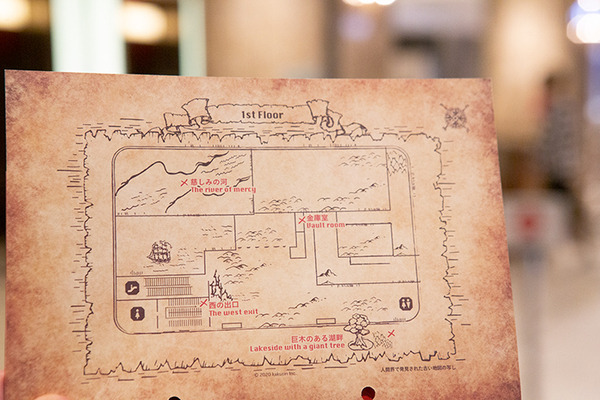 1st Floor
慈しみの河
The river of mercy
金庫室
Vault room
西の出口
The west exit
巨木のある湖畔
Lakeside with a giant tree
© 2020 kakusin Inc.
人間界で発見された古い地図の写し